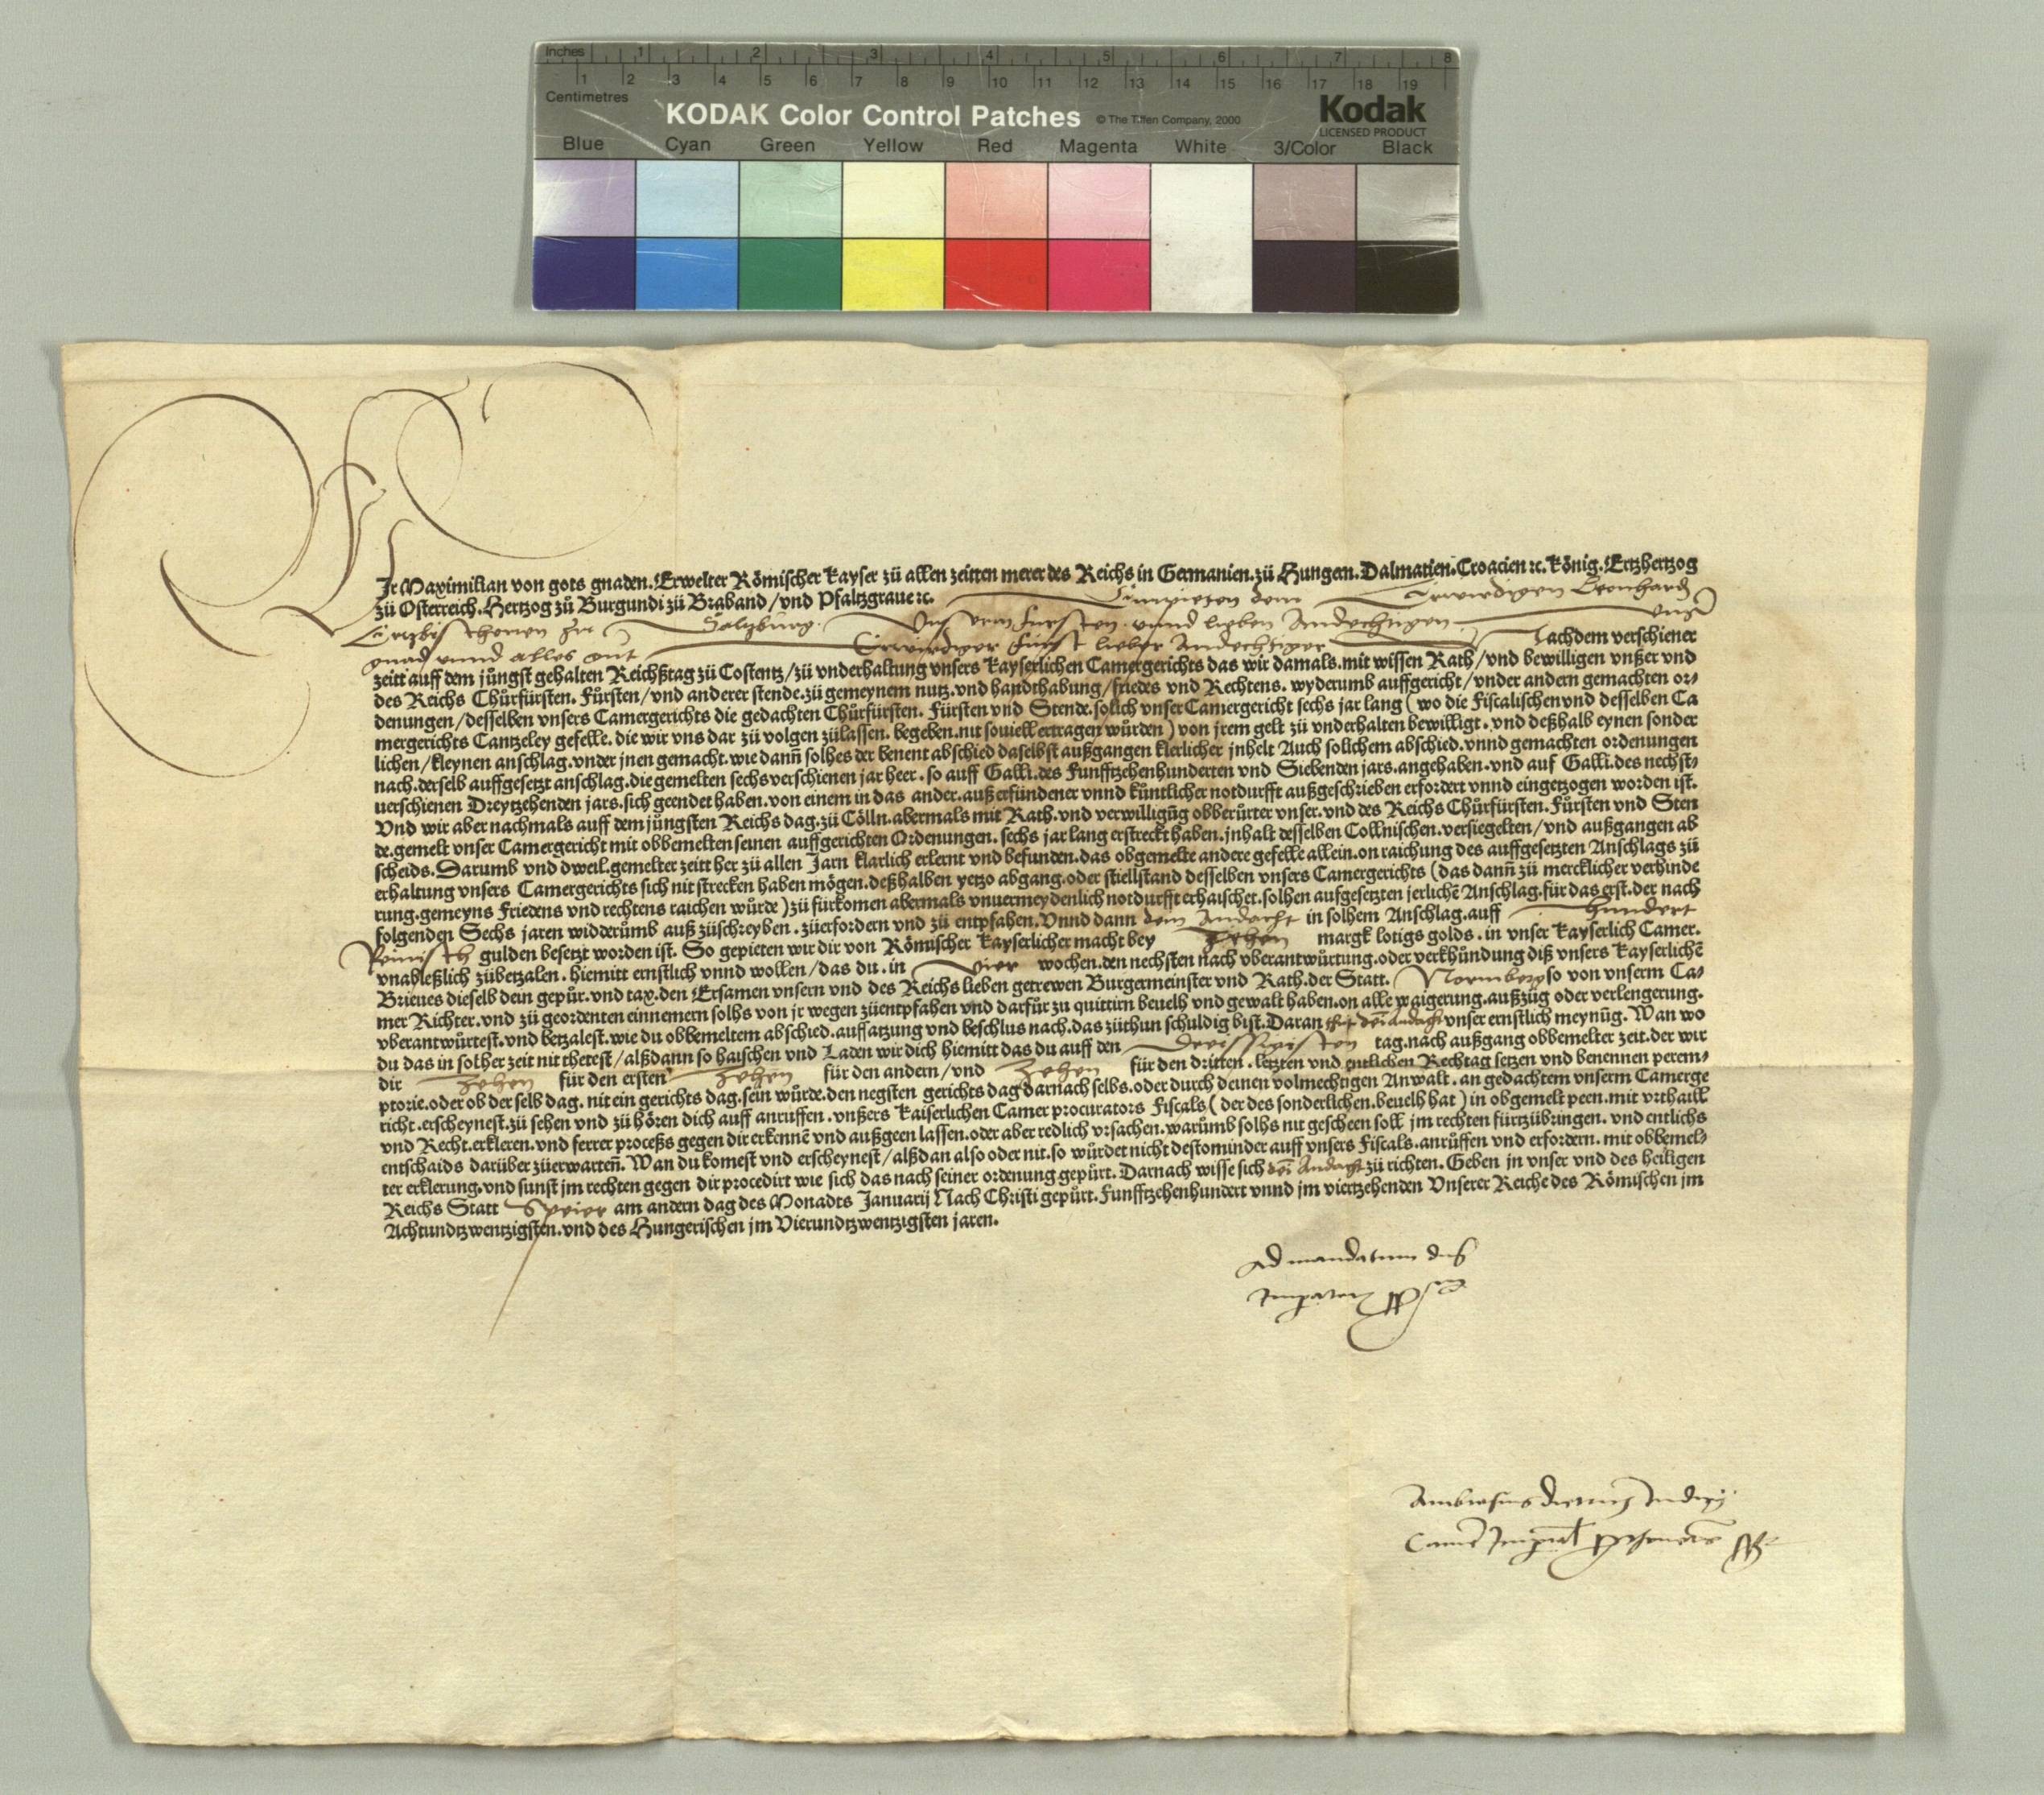 Inches 1 2 3 4 5 6 7 8
1 2 3 4 5 6 7 8 9 10 11 12 13 14 15 16 17 18 19
Centimetres
KODAK Color Control Patches © The Tiffen Company, 2000 Kodak
LICENSED PRODUCT
Blue Cyan Green Yellow Red Magenta White 3/Color Black
WJr Maximilian von gots gnaden. Erwelter Römischer kayser zů allen zeitten merer des Reichs in Germanien. zů Hungern. Dalmatien. Croacien ꝛc. König. Ertzhertzog
zů Osterreich. Hertzog zů Burgundi zů Braband / vnd Pfaltzgraue ꝛc. Empieten dem Erwirdigen Leonhard
Ertzbischouen zu Saltzburg. Unserm fursten vnnd lieben Andechtigen vnser
gnad vnnd alles gut Erwirdiger fürst lieber Andechtiger Nachdem verschiener
zeitt auff dem jůngst gehalten Reichßtag zů Costentz / zů vnderhaltung vnsers kayserlichen Camergerichts das wir damals. mit wissen Rath / vnd bewilligen vnßer vnd
des Reichs Chůrfürsten. Fůrsten / vnd anderer stende. zů gemeynem nutz. vnd handthabung / friedes vnd Rechtens. wyderumb auffgericht / vnder andern gemachten or⸗
denungen / desselben vnsers Camergerichts die gedachten Chůrfürsten. Fürsten vnd Stende. solich vnser Camergericht sechs jar lang ( wo die Fiscalischen vnd desselben Ca
mergerichts Cantzeley gefelle. die wir vns dar zů volgen zůlassen. begeben. nit souiell ertragen würden ) von jrem gelt zů vnderhalten bewilligt. vnd deßhalb eynen sonder
lichen / kleynen anschlag. vnder jnen gemacht. wie dann̄ solhes der benent abschied daselbst außgangen klerlicher jnhelt Auch solichem abschied. vnnd gemachten ordenungen
nach. derselb auffgesetzt anschlag. die gemelten sechs verschienen jar heer. so auff Galli. des Funfftzehenhunderten vnd Siebenden jars. angehaben. vnd auf Galli. des nechst⸗
uerschienen Dreytzehenden jars. sich geendet haben. von einem in das ander. auß erfündener vnnd kůntlicher notdurfft außgeschrieben erfordert vnnd eingetzogen worden ist.
Vnd wir aber nachmals auff dem jůngsten Reichs dag. zů Cölln. abermals mit Rath. vnd verwilligūg obberůrter vnser. vnd des Reichs Chůrfürsten. Fůrsten vnd Sten
de. gemelt vnser Camergericht mit obbemelten seinen auffgerichten Ordenungen. sechs jar lang erstreckt haben. jnhalt desselben Collnischen. versiegelten / vnd außgangen ab
scheids. Darumb vnd dweil. gemelter zeitt her zů allen Jarn klarlich erlernt vnd befunden. das obgemelte andere gefelle allein. on raichung des auffgesetzten Anschlags zů
erhaltung vnsers Camergerichts sich nit strecken haben mögen. deßhalben yetzo abgang. oder stiellstand desselben vnsers Camergerichts ( das dann̄ zů mercklicher verhinde
rung. gemeyns Friedens vnd rechtens raichen wůrde ) zů fürkomen abermals vnuermeydenlich notdurfft erhaischet. solhen aufgesetzten jerlichē Anschlag. für das erst. der nach
folgenden Sechs jaren widderůmb auß zůschreyben. zůerfordern vnd zů entpfahen. Vnnd dann dein Andacht in solhem Anschlag. auff Hundert
Reinisch gulden besetzt worden ist. So gepieten wir dir von Römischer kayserlicher macht bey Zehen margk lotigs golds. in vnser kayserlich Camer.
vnableßlich zůbetzalen. hiemitt ernstlich vnnd wollen / das du. in vier wochen. den nechsten nach vberantwůrtung. oder verkhůndung diß vnsers kayserlichē
Brieues dieselb dein gepůr. vnd tax. den Ersamen vnsern vnd des Reichs lieben getrewen Burgermeinster vnd Rath. der Statt. Normberg so von vnserm Ca⸗
mer Richter. vnd zů geordenten einnemern solhs von jr wegen zůentpfahen vnd darfůr zu quittirn beuelh vnd gewalt haben. on alle waigerung. außzůg oder verlengerung.
vberantwůrtest. vnd betzalest. wie du obbemeltem abschied. auffatzung vnd beschlus nach. das zůthun schuldig bist. Daran thut dei Andacht vnser ernstlich meynūg. Wan wo
du das in solher zeit nit thetest / alßdann so haischen vnd Laden wir dich hiemitt das du auff den dreissigisten tag. nach außgang obbemelter zeit. der wir
dir Zehen für den ersten Zehen für den andern / vnd Zehen für den dritten. letzten vnd entlichen Rechtag setzen vnd benennen perem⸗
ptorie. oder ob der selb dag. nit ein gerichts dag. sein wůrde. den negsten gerichts dag darnach selbs. oder durch deinen volmechtigen Anwalt. an gedachtem vnserm Camerge
richt. erscheynest. zů sehen vnd zů hören dich auff anruffen. vnßers kaiserlichen Camer procurators Fiscals ( der des sonderlichen. beuelh hat ) in obgemelt peen. mit vrthaill
vnd Recht. erkleren. vnd ferrer proceßs gegen dir erkennē vnd außgeen lassen. oder aber redlich vrsachen. warůmb solhs nit gescheen soll jm rechten fůrtzůbringen. vnd entlichs
entschaids darüber zůerwarten̄. Wan du komest vnd erscheynest / alßdan also oder nit. so wůrdet nicht destominder auff vnsers Fiscals. anrůffen vnd erfordern. mit obbemel⸗
ter erklerung. vnd sunst jm rechten gegen dir procedirt wie sich das nach seiner ordenung gepůrt. Darnach wisse sich dei Andacht zů richten. Geben jn vnser vnd des heiligen
Reichs Statt Speier am andern dag des Monadts Januarij Nach Christi gepůrt. Funfftzehenhundert vnnd jm viertzehenden Vnserer Reiche des Römischen jm
Achtundtzwentzigsten. vnd des Hungerischen jm Vierundtzwentzigsten jaren.
Ad mandatum dni
Impatoris
Ambrosius Dietrich Judicij
Camere Imperial